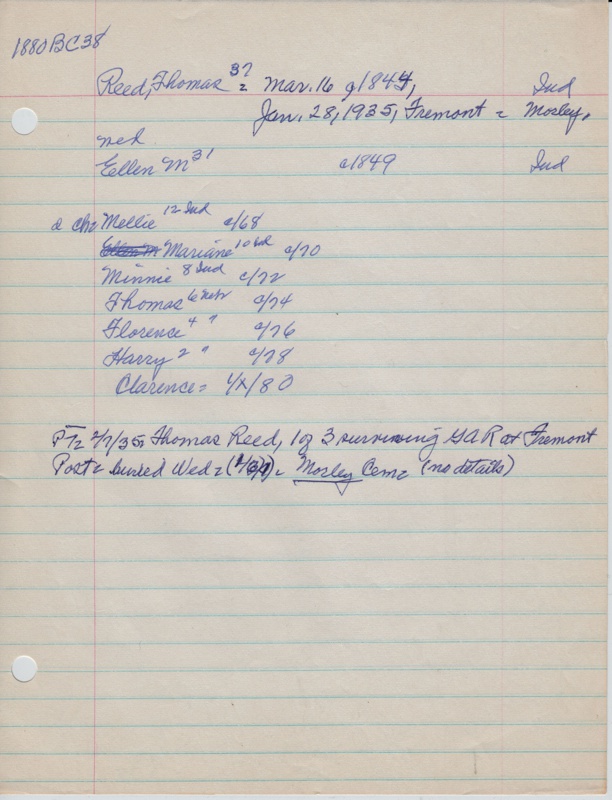 1880 BC38
Reed, Thomas 37 = Mar. 16, 1844, Ind
Jan. 28, 1935, Fremont = Mosley,
med.
Ellen M 31 c1849 Ind
2 ch= Mellie 12 Ind c/68
Mariane 10 Ind c/70
Minnie 8 Ind c/72
Thomas 6 Neb c/74
Florence 4 " c/76
Harry 2 " c/78
Clarence = 4/x/80
FT= 2/7/35= Thomas Reed, 1 of 3 surviving GAR at Fremont
Post = buried Wed = = Mosley Cem= (no details)